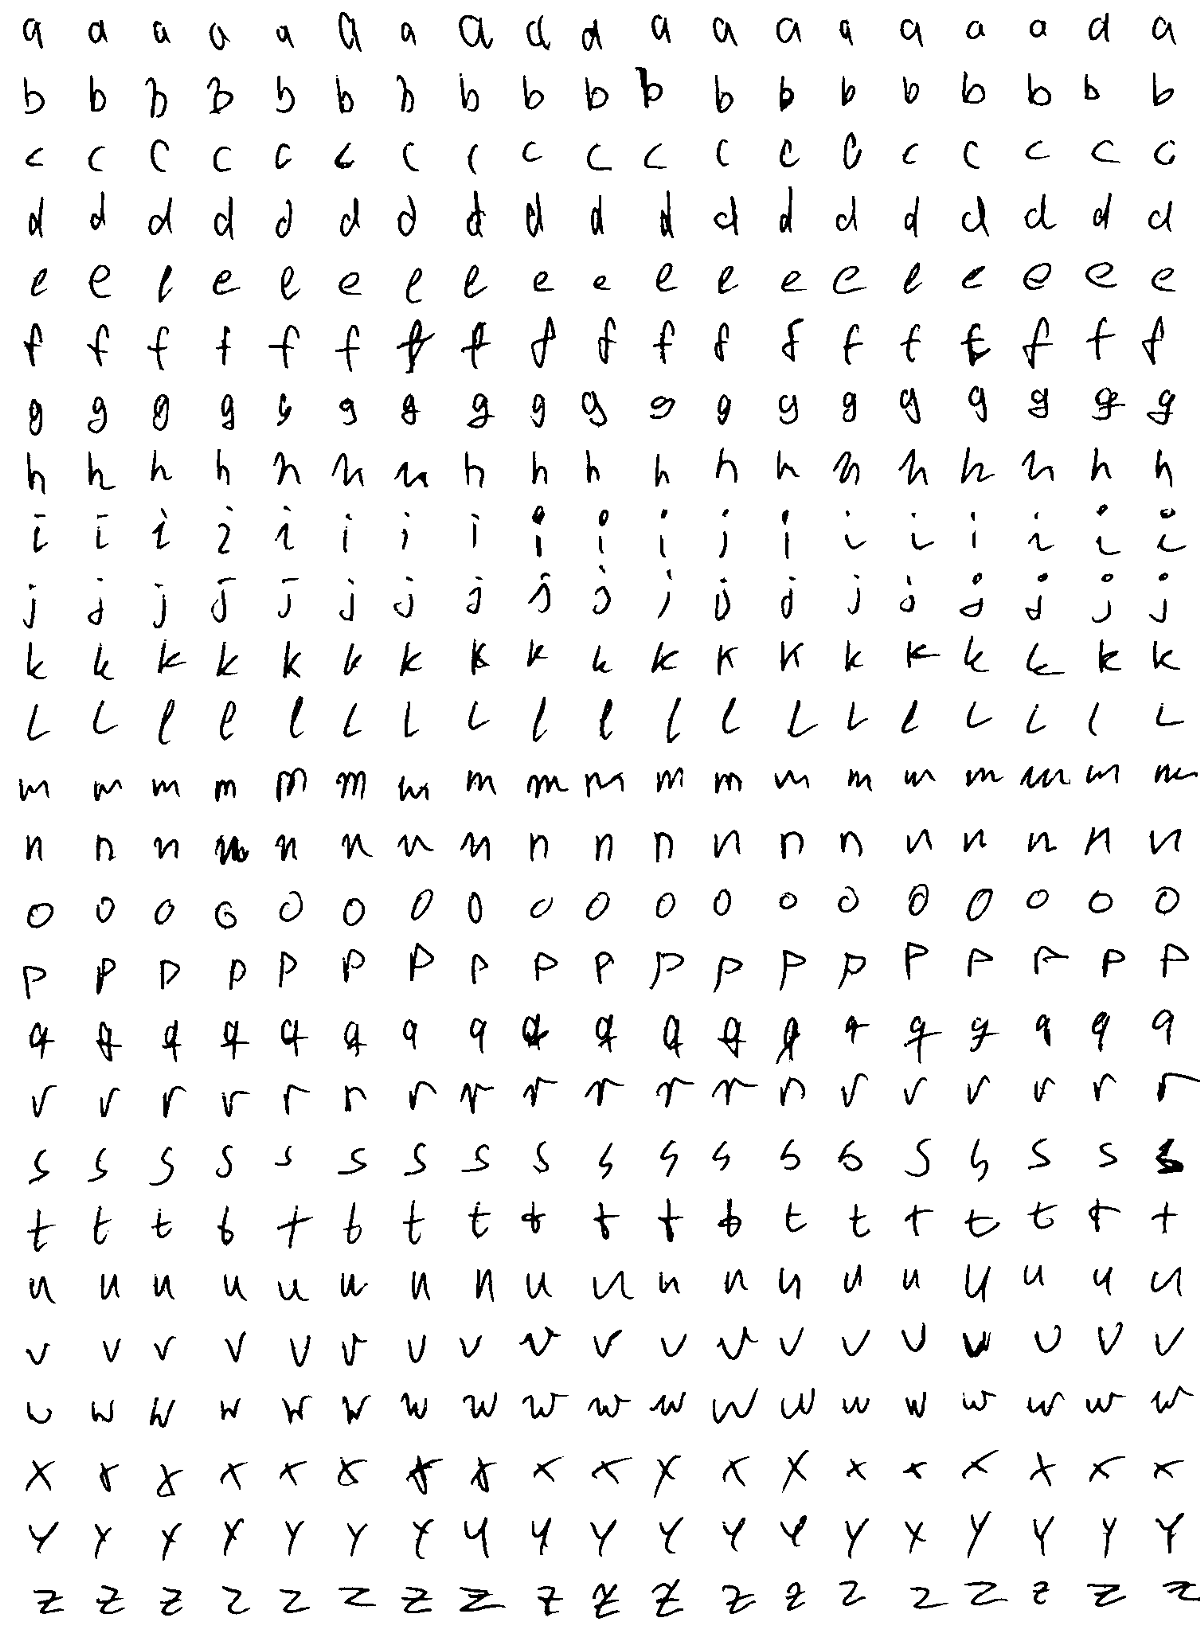 a a a a a a a a a a a a a a a a a a a
b b b b b b b b b b b b b b b b b b b
c c c c c c c c c c c c c c c c c c c
d d d d d d d d d d d d d d d d d d d
e e e e e e e e e e e e e e e e e e e
f f f f f f f f f f f f f f f f f f f
g g g g g g g g g g g g g g g g g g g
h h h h h h h h h h h h h h h h h h h
i i i i i i i i i i i i i i i i i i i
j j j j j j j j j j j j j j j j j j j
k k k k k k k k k k k k k k k k k k k
l l l l l l l l l l l l l l l l l l l
m m m m m m m m m m m m m m m m m m m
n n n n n n n n n n n n n n n n n n n
o o o o o o o o o o o o o o o o o o o
p p p p p p p p p p p p p p p p p p p
q q q q q q q q q q q q q q q q q q q
r r r r r r r r r r r r r r r r r r r
s s s s s s s s s s s s s s s s s s s
t t t t t t t t t t t t t t t t t t t
u u u u u u u u u u u u u u u u u u u
v v v v v v v v v v v v v v v v v v v
w w w w w w w w w w w w w w w w w w w
x x x x x x x x x x x x x x x x x x x
y y y y y y y y y y y y y y y y y y y
z z z z z z z z z z z z z z z z z z z